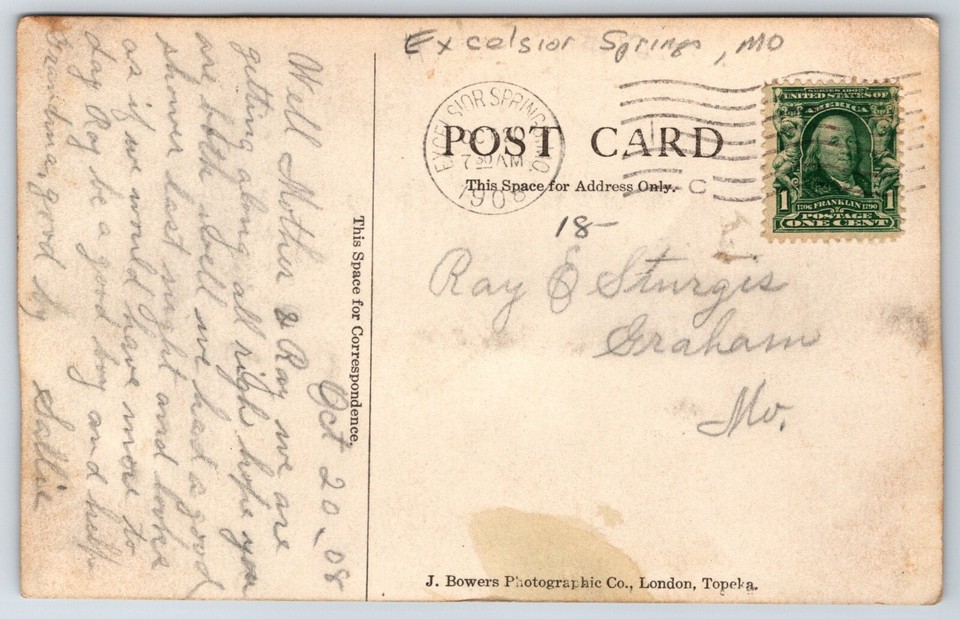 Excelsior Springs, MO
EXCELSIOR SPRINGS, MO
7 30 AM
1908
POST CARD
This Space for Address Only.
C
SERIES 1902
UNITED STATES OF
AMERICA
1 1
1706 FRANKLIN 1790
POSTAGE
ONE CENT
18-
Ray E Sturgis
Graham
Mo.
J. Bowers Photographic Co., London, Topeka.
This Space for Correspondence.
Oct 20, 08
Well Mother & Ray we are
getting along all righ hope you
are both well we had a good
shower last night and looks
as if we would have more to
day Ray be a good boy and help
Grandma, good by
Sallie